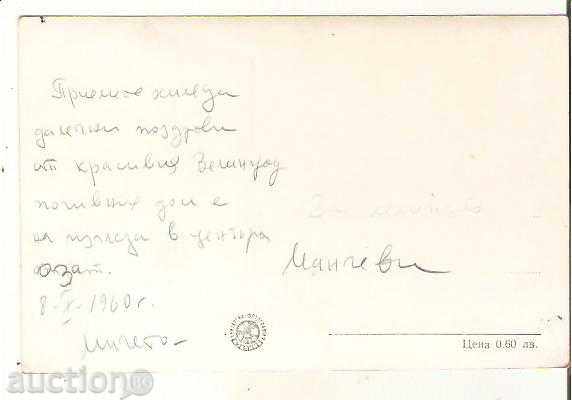 Приемете хиляди
далечни поздрави
от красивия Велинград
почивния дом е
на изгледа в центъра
8-X-1960 г.
Минчето
За
Манчеви
Цена 0.60 лв.
auction